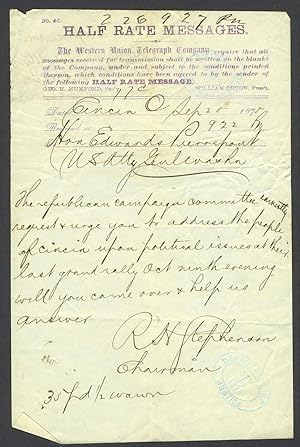 No. 44.
2 26 927 Pm
HALF RATE MESSAGES.
The Western Union Telegraph Company require that all
messages received for transmission shall be written on the blanks
of the Company, under and subject to the conditions printed
thereon, which conditions have been agreed to by the sender of
the following HALF RATE MESSAGE.
GEO. H. MUMFORD, Sec'y
WILLIAM ORTON, Pres't.
Dated Cincin O Sep 25 187
Received at 922 M
Hon Edwards Pierrepont
US Atty Genl Washn
The republican campaign committee earnestly
request & urge you to address the people
of Cincin upon political issues at their
last grand rally Oct ninth evening
will you come over & help us
answer
R H Stephenson
Chairman
35 pd 1/2
JUSTICE